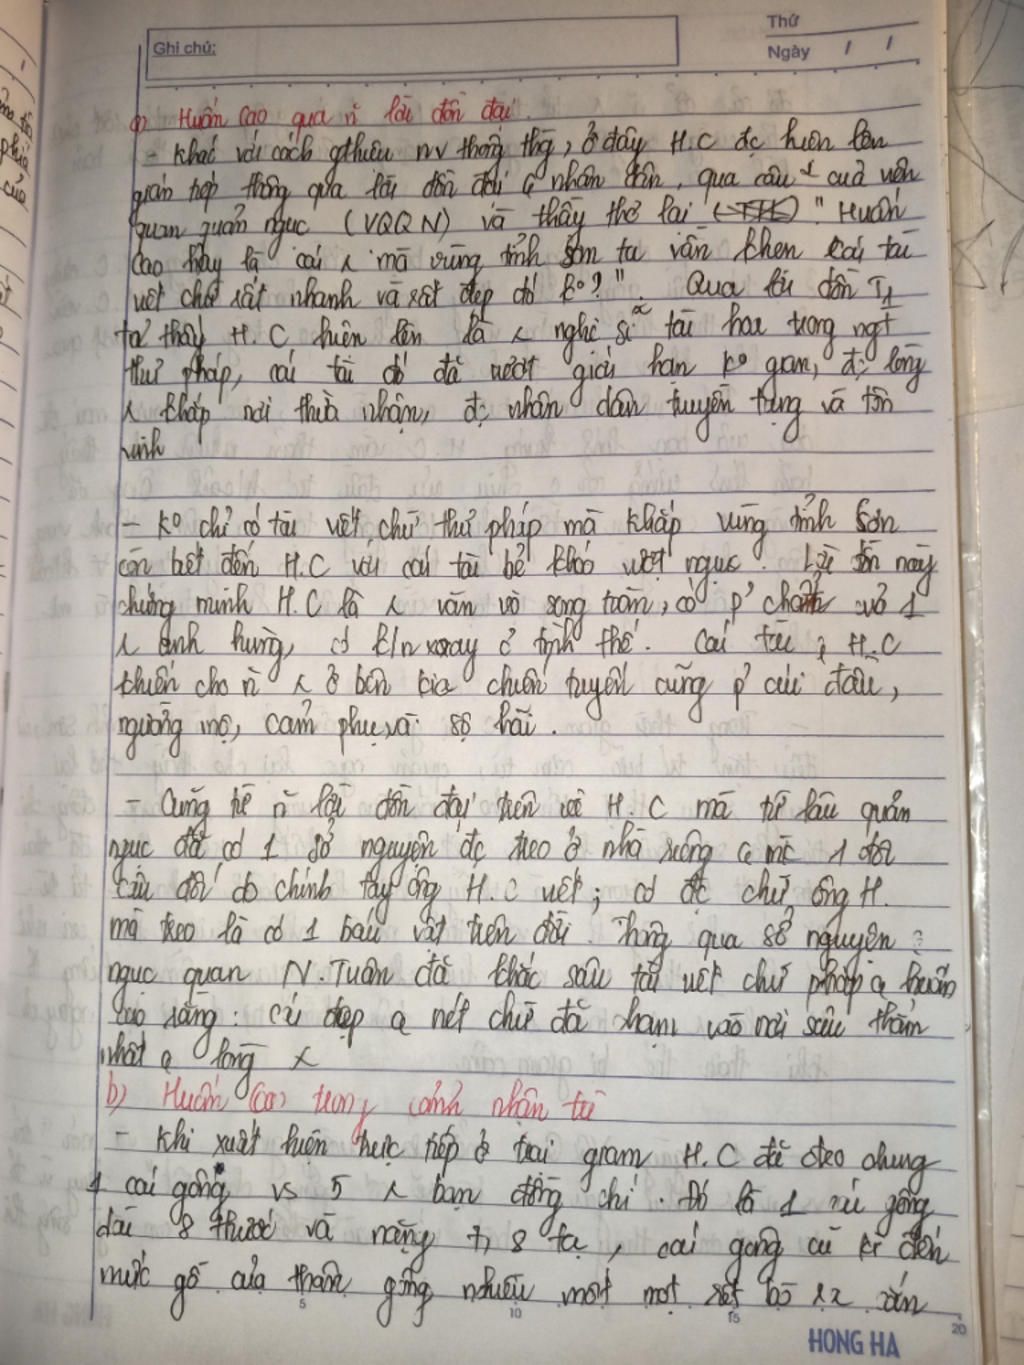 Thứ
Ghi chú:
Ngày / /
a) Huấn Cao qua n̄ lời đồn đại.
- Khác với cách gthiệu nv thông thg, ở đây H.C đc hiện lên
gián tiếp thông qua lời đồn đại nhân dân, qua câu của viên
quan quản ngục (VQQN) và thầy thơ lại " Huấn
Cao hay là cái mà vùng tỉnh Sơn ta vẫn khen cái tài
viết chữ rất nhanh và rất đẹp đó ko?". Qua lời đồn
ta thấy H.C hiện lên là nghệ sĩ tài hoa trong ngt
thư pháp, cái tài đó đã vượt giới hạn ko gian, đc lòng
khắp nơi thừa nhận, đc nhân dân truyền tụng và tôn
vinh
- Ko chỉ có tài viết chữ thư pháp mà khắp vùng tỉnh Sơn
còn biết đến H.C với cái tài bẻ khóa vượt ngục. Lời đồn này
chứng minh H.C là văn võ song toàn, có p' chất của 1
anh hùng, có k/n xoay ở tình thế. Cái tài H.C
khiến cho n̄ ở bên kia chiến tuyến cũng p' cúi đầu,
ngưỡng mộ, cảm phục và sợ hãi.
- Cũng từ n̄ lời đồn đại trên về H.C mà từ lâu quản
ngục đã có 1 sở nguyện đc treo ở nhà riêng 1 đôi
câu đối do chính tay ông H.C viết; có đc chữ ông H.
mà treo là có 1 báu vật trên đời. Thông qua sở nguyện
ngục quan N.Tuân đã khắc sâu tài viết chữ pháp Huấn
Cao rằng: cái đẹp nét chữ đã chạm vào nơi sâu thẳm
nhất lòng
b) Huấn Cao trong cảnh nhận tù
- Khi xuất hiện trực tiếp ở trại giam H.C đã đeo chung
1 cái gông vs 5 bạn đồng chí. Đó là 1 cái gông
dài 8 thước và nặng 7, 8 tạ, cái gong cũ kĩ đến
mức gỗ của thân gông nhiều
5 10 15 20
HONG HA